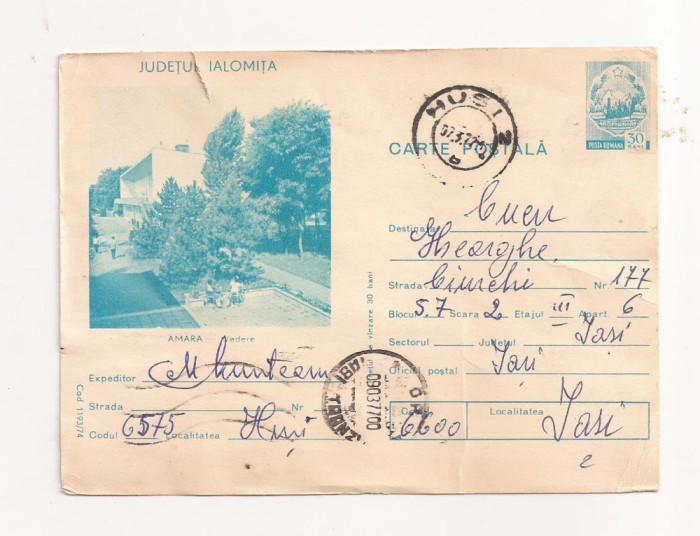 JUDEȚUL IALOMIȚA
HUSI 2
07.3.77
CARTE POȘTALĂ
30
BANI
POSTA ROMANA
AMARA Vedere
Destinatar Cucu
Gheorghe
Strada Ciurchi Nr. 177
Blocul 57 Scara 2 Etajul III Apart. 6
Sectorul Județul Iași
Oficiul poștal Iași
Codul 6600 Localitatea Iași
Expeditor M Munteanu
Strada Nr
Codul 6575 Localitatea Huși
Cod 1193/74
de vînzare 30 bani
090377.00